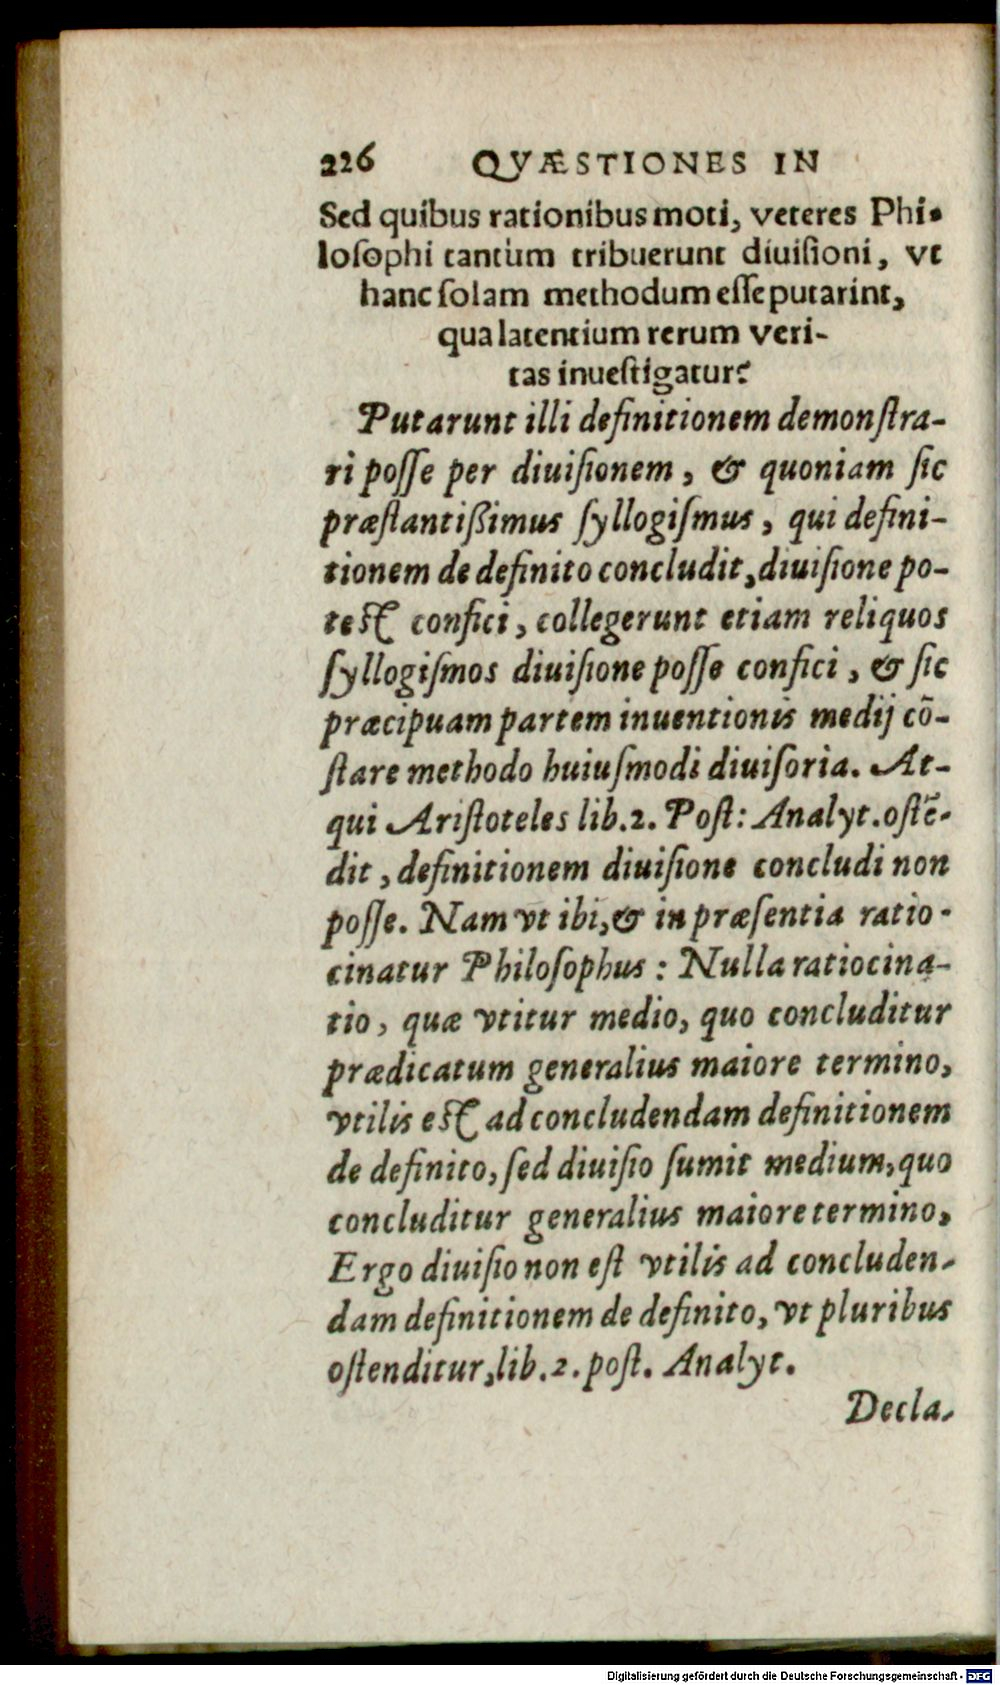 226 QVÆSTIONES IN
Sed quibus rationibus moti, veteres Phi-
loſophi tantùm tribuerunt diuiſioni, vt
hanc ſolam methodum eſſe putarint,
qua latentium rerum veri-
tas inueſtigatur?
Putarunt illi definitionem demonſtra-
ri poſſe per diuiſionem, & quoniam ſic
præſtantißimus ſyllogiſmus, qui defini-
tionem de definito concludit, diuiſione po-
teſt confici, collegerunt etiam reliquos
ſyllogiſmos diuiſione poſſe confici, & ſic
præcipuam partem inuentionis medij cõ-
ſtare methodo huiuſmodi diuiſoria. At-
qui Ariſtoteles lib.2. Poſt: Analyt. oſtẽ-
dit, definitionem diuiſione concludi non
poſſe. Nam vt ibi, & in præſentia ratio-
cinatur Philoſophus: Nulla ratiocina-
tio, quæ vtitur medio, quo concluditur
prædicatum generalius maiore termino,
vtilis eſt ad concludendam definitionem
de definito, ſed diuiſio ſumit medium, quo
concluditur generalius maiore termino,
Ergo diuiſio non eſt vtilis ad concluden-
dam definitionem de definito, vt pluribus
oſtenditur, lib.2. poſt. Analyt.
Decla-
Digitalisierung gefördert durch die Deutsche Forschungsgemeinschaft - DFG